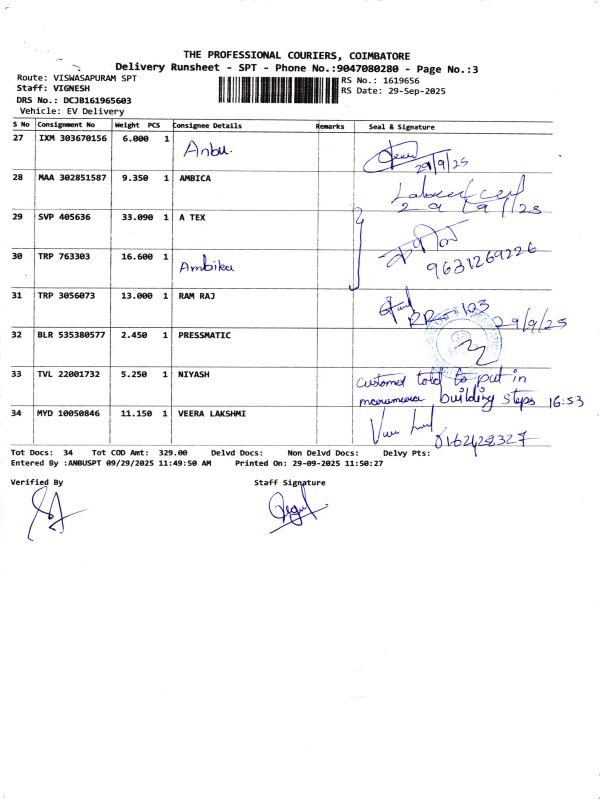 THE PROFESSIONAL COURIERS, COIMBATORE
Delivery Runsheet - SPT - Phone No.:9047080280 - Page No.:3
Route: VISWASAPURAM SPT
RS No.: 1619656
Staff: VIGNESH
RS Date: 29-Sep-2025
DRS No.: DCJB161965603
Vehicle: EV Delivery
S No Consignment No Weight PCS Consignee Details Remarks Seal & Signature
27 IXM 303670156 6.000 1 Anbu.
29/9/25
28 MAA 302851587 9.350 1 AMBICA
29/9/25
29 SVP 405636 33.090 1 A TEX
30 TRP 763303 16.600 1 Ambika
9631269226
31 TRP 3056073 13.000 1 RAM RAJ
29/9/25
32 BLR 535380577 2.450 1 PRESSMATIC
33 TVL 22001732 5.250 1 NIYASH
customer told to put in
building steps 16:53
34 MYD 10050846 11.150 1 VEERA LAKSHMI
Tot Docs: 34 Tot COD Amt: 329.00 Delvd Docs: Non Delvd Docs: Delvy Pts:
Entered By :ANBUSPT 09/29/2025 11:49:50 AM Printed On: 29-09-2025 11:50:27
Verified By Staff Signature